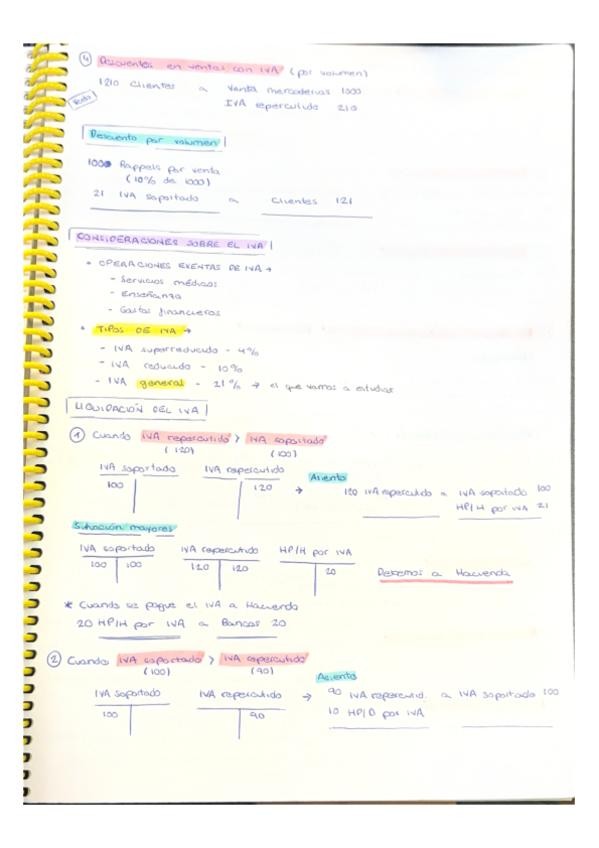 4 Descuentos en ventas con IVA (por volumen)
1210 Clientes a Venta mercaderías 1000
IVA repercutido 210
Descuento por volumen
100 Rappels por venta
(10% de 1000)
21 IVA soportado a Clientes 121
CONSIDERACIONES SOBRE EL IVA
• OPERACIONES EXENTAS DE IVA →
- Servicios médicos
- Enseñanza
- Gastos financieros
• TIPOS DE IVA →
- IVA superreducido - 4%
- IVA reducido - 10%
- IVA general - 21% → el que vamos a estudiar
LIQUIDACIÓN DEL IVA
1 Cuando IVA repercutido > IVA soportado
(120) (100)
IVA soportado IVA repercutido Asiento
100 120 → 120 IVA repercutido a IVA soportado 100
HP/H por IVA 21
Situación mayores
IVA soportado IVA repercutido HP/H por IVA
100 100 120 120 20 Debemos a Hacienda
* Cuando se pague el IVA a Hacienda
20 HP/H por IVA a Bancos 20
2 Cuando IVA soportado > IVA repercutido
(100) (90)
Asiento
IVA soportado IVA repercutido → 90 IVA repercutid. a IVA soportado 100
100 90 10 HP/D por IVA